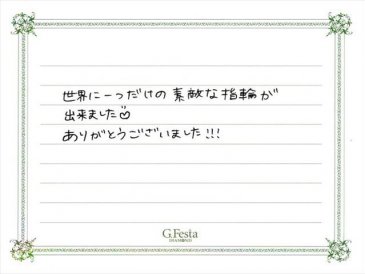 世界に一つだけの素敵な指輪が
出来ました♡
ありがとうございました!!!
G.Festa
DIAMOND